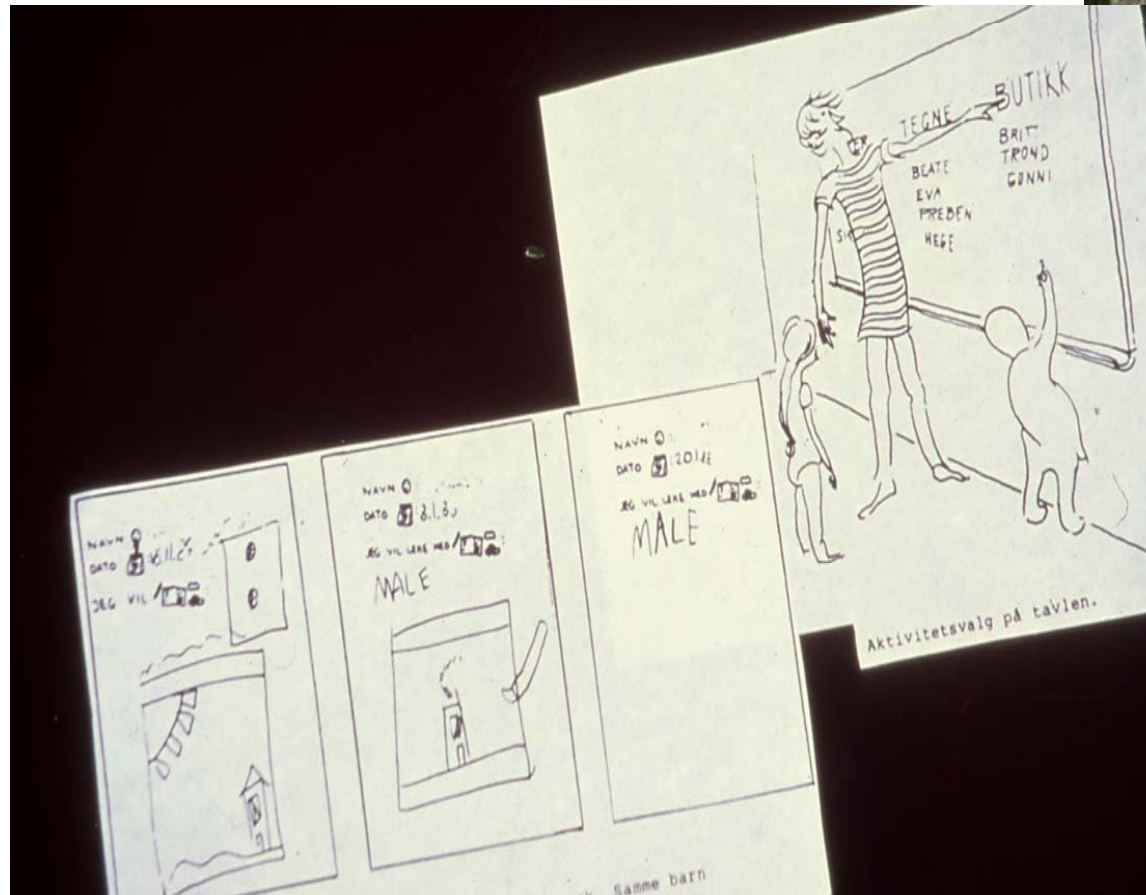 TEGNE
BUTIKK
BEATE
EVA
PREBEN
HEGE
BRITT
TROND
GONNI
Aktivitetsvalg på tavlen.
NAVN
DATO
JEG VIL
NAVN
DATO
JEG VIL LEKE MED
MALE
NAVN
DATO
JEG VIL LEKE MED
MALE
Samme barn